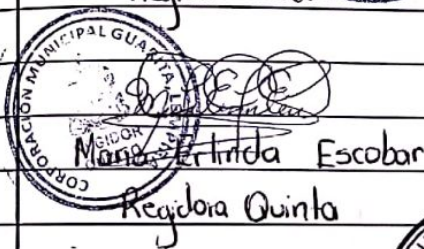 CORPORACIÓN MUNICIPAL GUARITA, LEMPIRA
REGIDOR
Maria Erlinda Escobar
Regidora Quinta